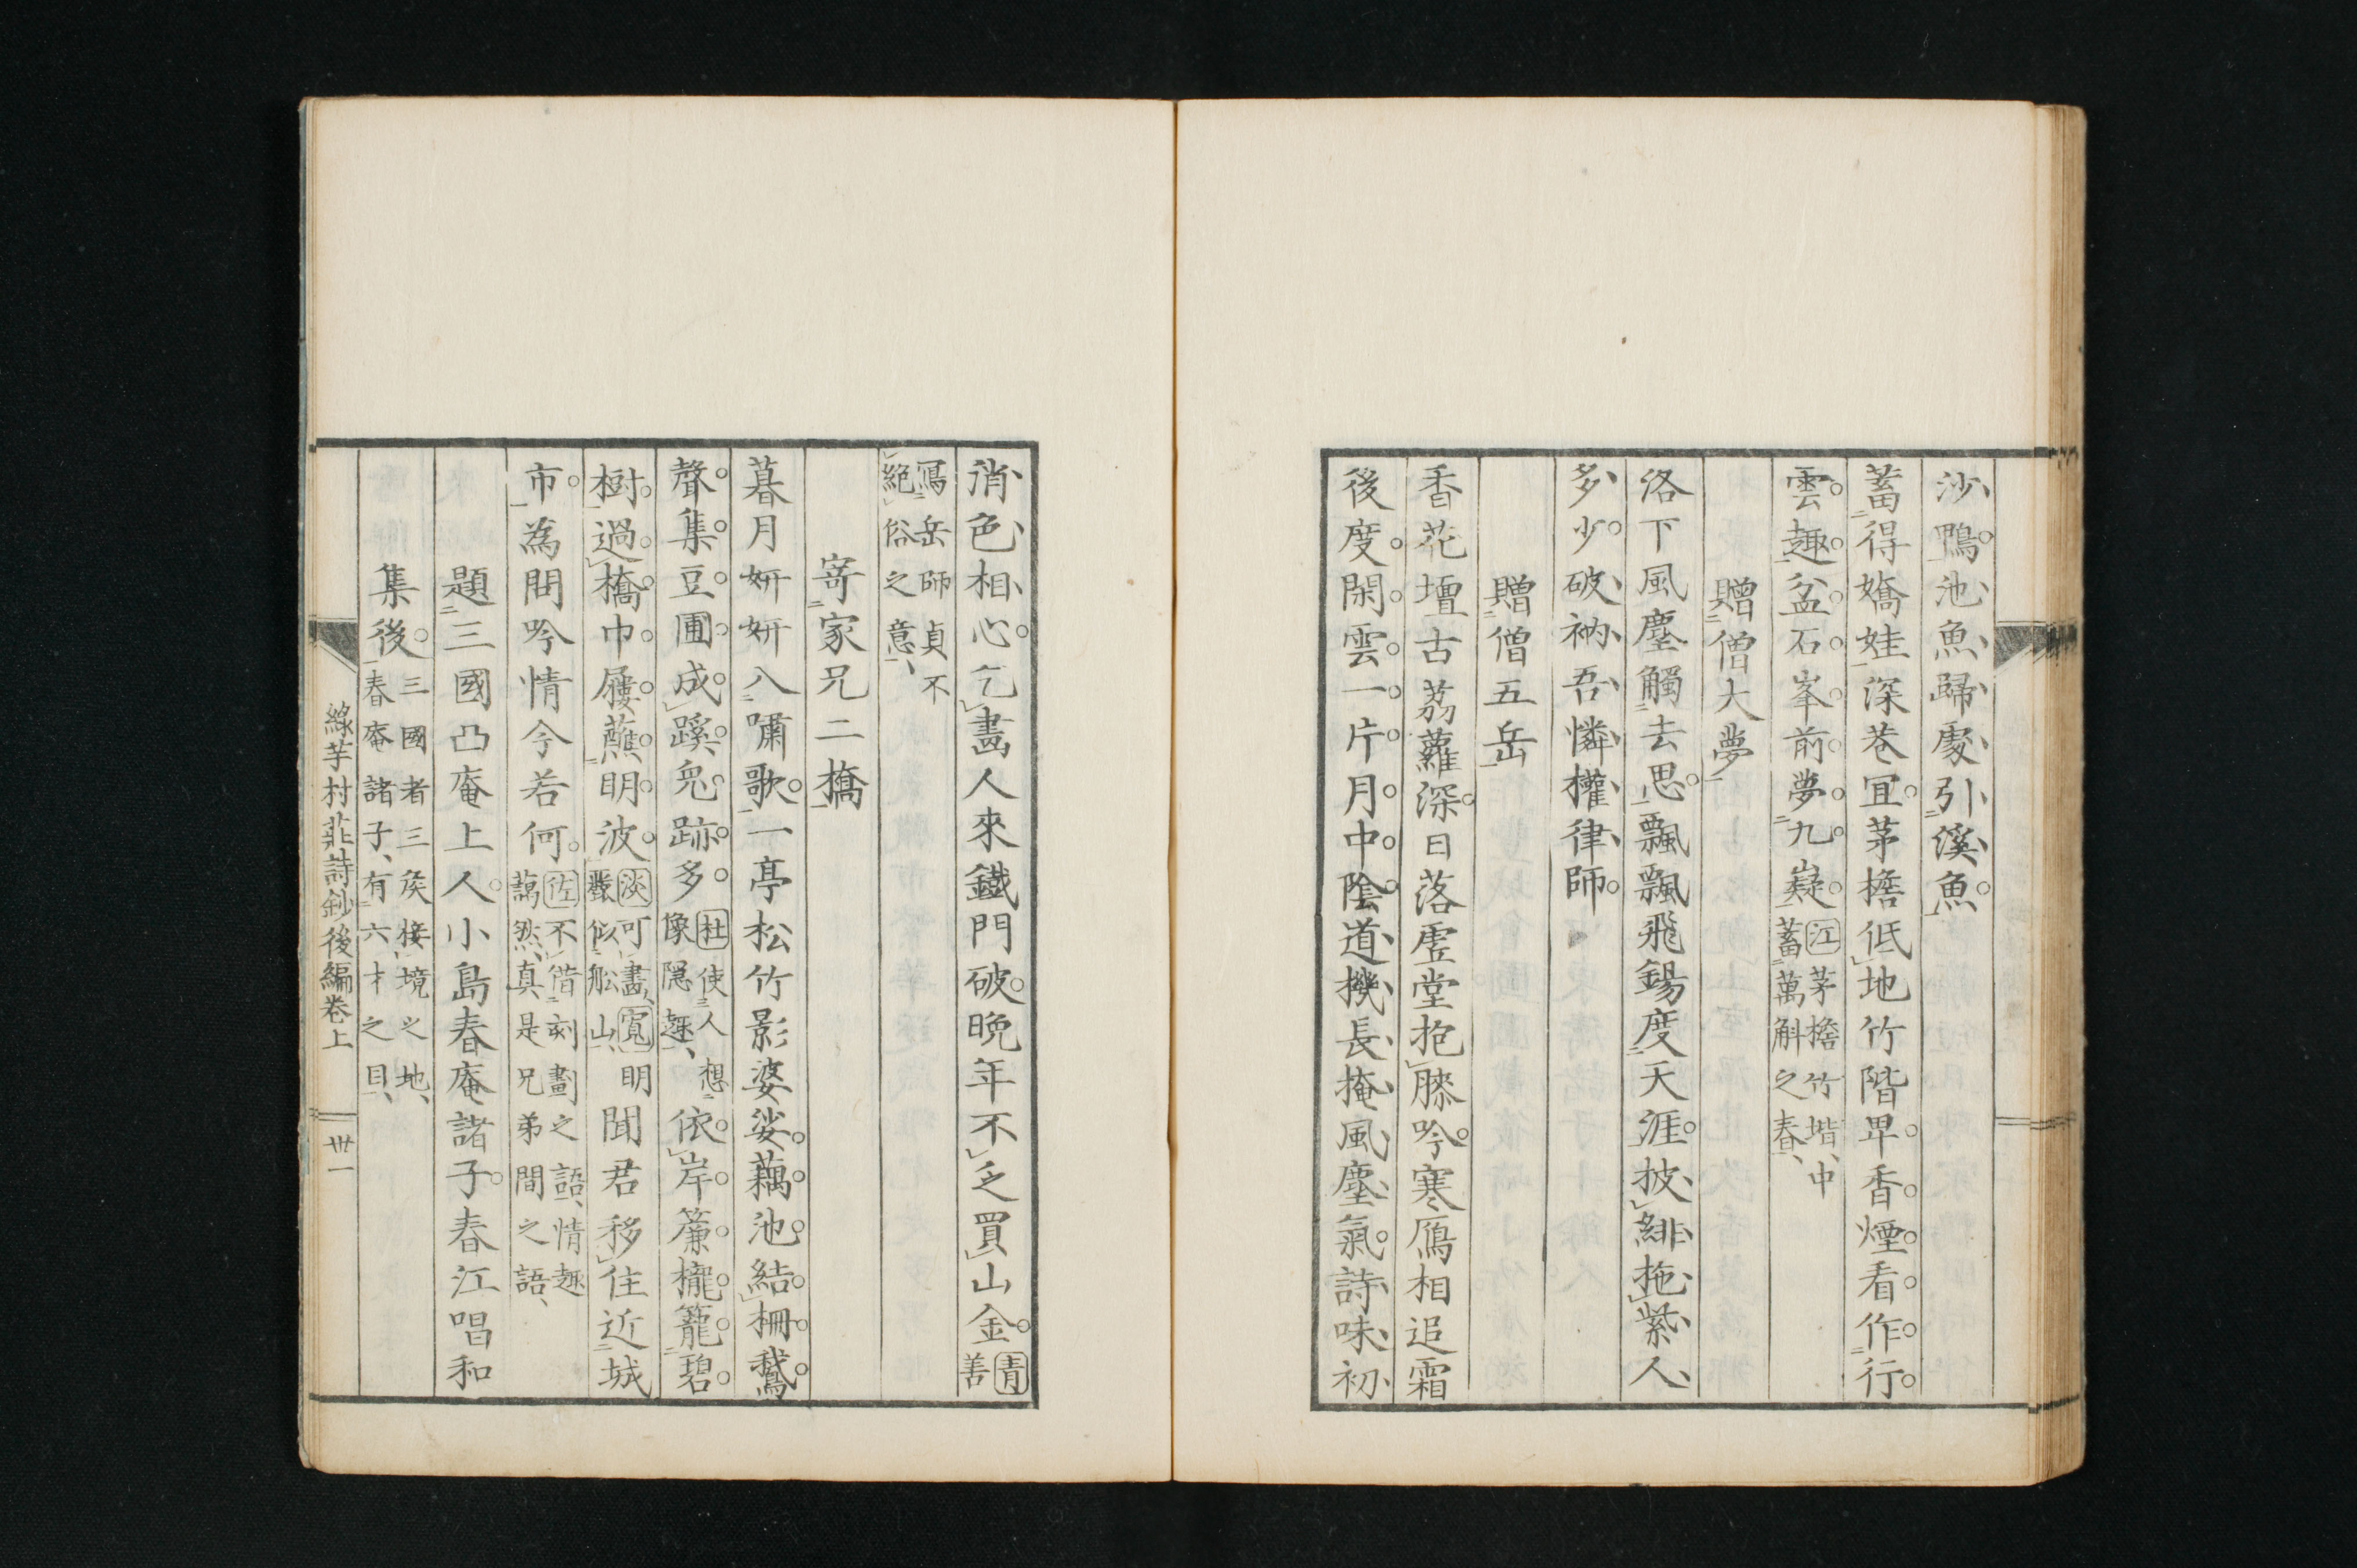 沙鴨池魚歸處引溪魚
蓄得嬌娃深巷宜茅檐低地竹階卑香煙看作行
雲趣盆石峯前夢九嶷江茅檐竹堦、中
蓄萬斛之春、
贈僧大夢
洛下風塵觸去思飄飄飛錫度天涯披緋拖紫人
多少破衲吾憐權律師
贈僧五岳
香花壇古荔蘿深日落虛堂抱膝吟寒鴈相追霜
後度閑雲一片月中陰道機長掩風塵氣詩味初
消色相心乞畫人來鐵門破晚年不乏買山金青
善
寫岳師貞不
絕俗之意、
寄家兄二橋
暮月妍妍八嘯歌一亭松竹影婆娑藕池結柵鵞
聲集豆圃成蹊兔跡多杜使人想
像隠趣、依岸簾櫳籠碧
樹過橋巾屨蘸明波淡可畫、寬明
甃似船山、聞君移住近城
市為問吟情今若何佐不借刻劃之語、情趣
藹然、真是兄弟間之語、
題三國凸庵上人小島春庵諸子春江唱和
集後三國者三矦接境之地、
春庵諸子、有六才之目、
綠芋村莊詩鈔後編卷上 丗一